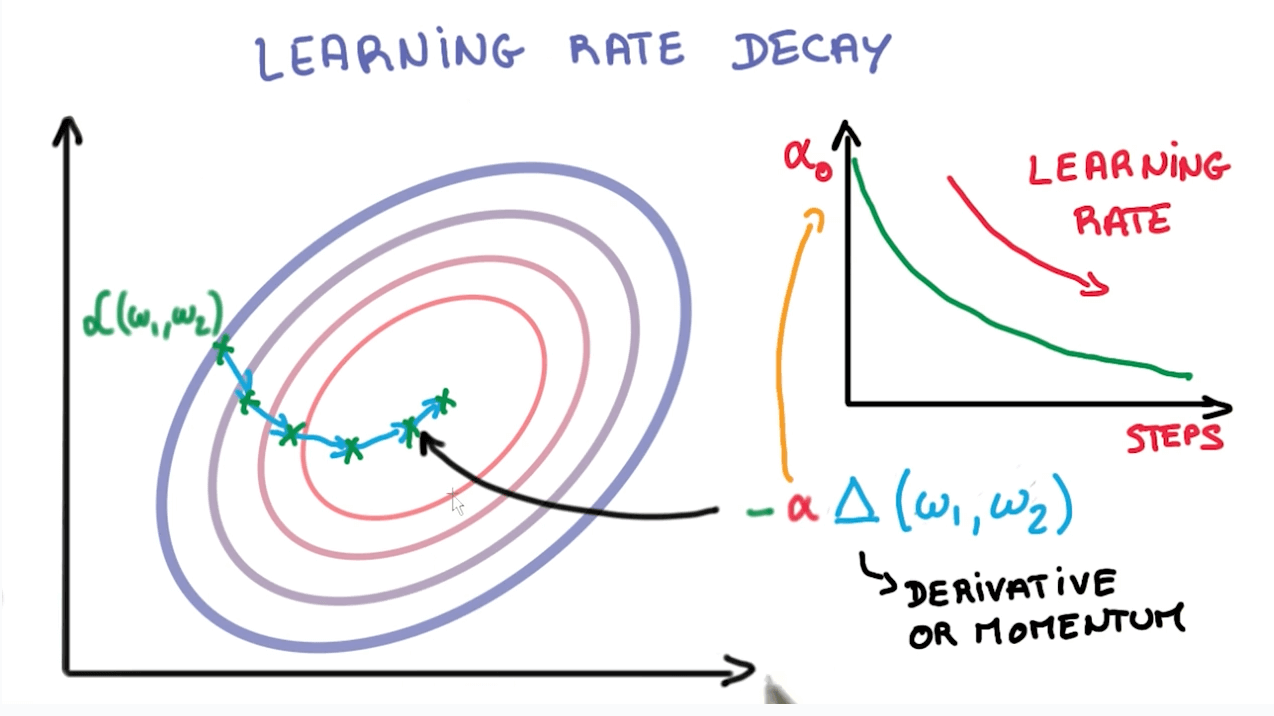 LEARNiNG RATE DECAY
α₀
LEARNiNG
RATE
ℒ(ω₁,ω₂)
STEPS
- α Δ (ω₁,ω₂)
DERiVATiVE
OR MOMENTUM